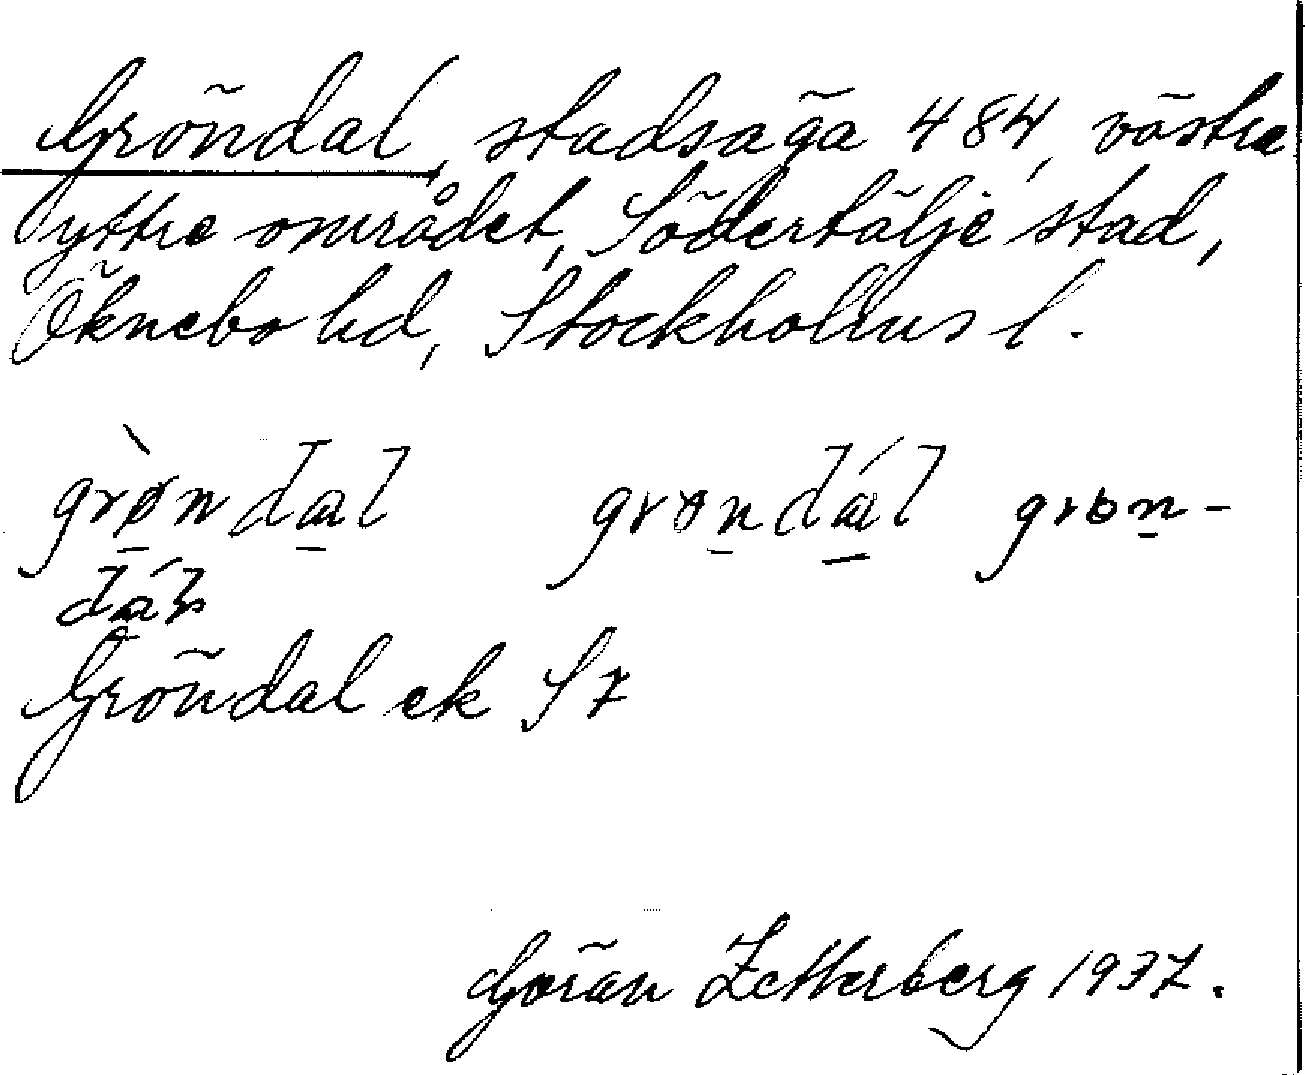 Gröndal, stadsäga 484, västra
yttre området, Södertälje stad,
Öknebo hd, Stockholms l.
grø̀ndal grøndál grøn-
dáls
Gröndal ek S7
Göran Zetterberg 1937.